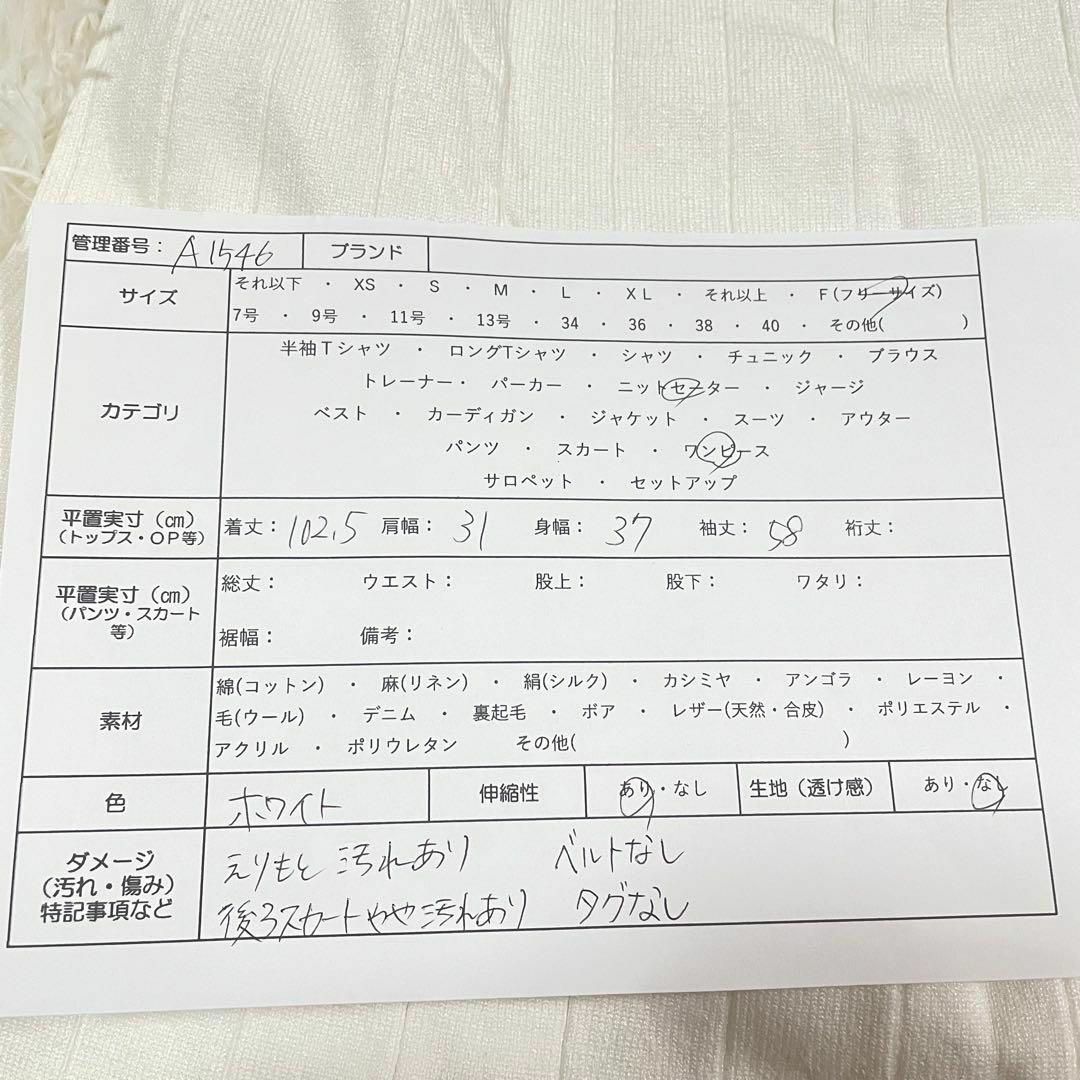 管理番号： A1546 ブランド
サイズ
それ以下 ・ XS ・ S ・ M ・ L ・ XL ・ それ以上 ・ F(フリーサイズ)
7号 ・ 9号 ・ 11号 ・ 13号 ・ 34 ・ 36 ・ 38 ・ 40 ・ その他( )
カテゴリ
半袖Tシャツ ・ ロングTシャツ ・ シャツ ・ チュニック ・ ブラウス
トレーナー・ パーカー ・ ニットセーター ・ ジャージ
ベスト ・ カーディガン ・ ジャケット ・ スーツ ・ アウター
パンツ ・ スカート ・ ワンピース
サロペット ・ セットアップ
平置実寸（㎝）
（トップス・OP等）
着丈：102.5 肩幅： 31 身幅： 37 袖丈： 58 裄丈：
平置実寸（㎝）
（パンツ・スカート
等）
総丈： ウエスト： 股上： 股下： ワタリ：
裾幅： 備考：
素材
綿(コットン) ・ 麻(リネン) ・ 絹(シルク) ・ カシミヤ ・ アンゴラ ・ レーヨン ・
毛(ウール) ・ デニム ・ 裏起毛 ・ ボア ・ レザー(天然・合皮) ・ ポリエステル ・
アクリル ・ ポリウレタン その他( )
色 ホワイト 伸縮性 あり・なし 生地（透け感） あり・なし
ダメージ
（汚れ・傷み）
特記事項など
えりもと 汚れあり ベルトなし
後ろスカートやや汚れあり タグなし